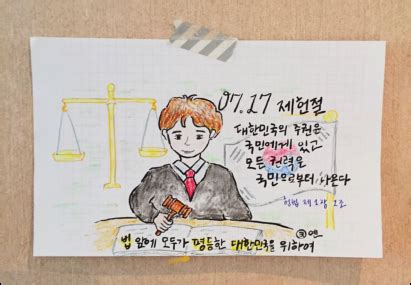 07.17 제헌절
대한민국의 주권은
국민에게 있고
모든 권력은
국민으로부터 나온다
헌법 제1장 1조
법 앞에 모두가 평등한 대한민국을 위하여